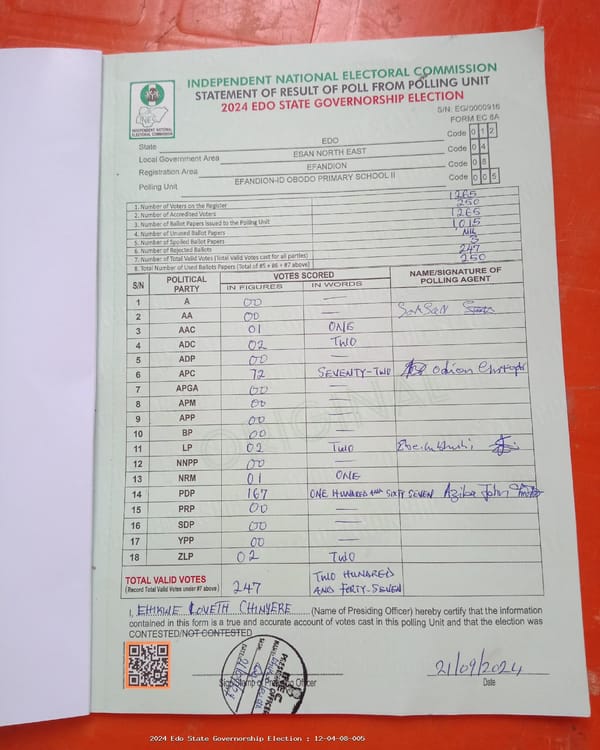 INDEPENDENT NATIONAL ELECTORAL COMMISSION
STATEMENT OF RESULT OF POLL FROM POLLING UNIT
2024 EDO STATE GOVERNORSHIP ELECTION
S/N: EG/0000916
FORM EC 8A
INDEPENDENT NATIONAL ELECTORAL COMMISSION
State EDO Code 0 1 2
Local Government Area ESAN NORTH EAST Code 0 4
Registration Area EFANDION Code 0 8
Polling Unit EFANDION-ID OBODO PRIMARY SCHOOL II Code 0 0 5
1. Number of Voters on the Register 1265
2. Number of Accredited Voters 250
3. Number of Ballot Papers Issued to the Polling Unit 1265
4. Number of Unused Ballot Papers 1,015
5. Number of Spoiled Ballot Papers NIL
6. Number of Rejected Ballots 3
7. Number of Total Valid Votes (Total Valid Votes cast for all parties) 247
8. Total Number of Used Ballots Papers (Total of #5 + #6 + #7 above) 250
S/N POLITICAL PARTY VOTES SCORED IN FIGURES IN WORDS NAME/SIGNATURE OF POLLING AGENT
1 A 00 —
2 AA 00 —
3 AAC 01 ONE
4 ADC 02 TWO
5 ADP 00 —
6 APC 72 SEVENTY-TWO Odion
7 APGA 00 —
8 APM 00 —
9 APP 00 —
10 BP 00 —
11 LP 02 TWO
12 NNPP 00 —
13 NRM 01 ONE
14 PDP 167 ONE HUNDRED AND SIXTY SEVEN Aziba John
15 PRP 00 —
16 SDP 00 —
17 YPP 00 —
18 ZLP 02 TWO
TOTAL VALID VOTES
(Record Total Valid Votes under #7 above) 247 TWO HUNDRED AND FORTY-SEVEN
I, EHIKINE LOVETH CHINYERE (Name of Presiding Officer) hereby certify that the information
contained in this form is a true and accurate account of votes cast in this polling Unit and that the election was
CONTESTED/NOT CONTESTED
21/09/2024
Date
2024 Edo State Governorship Election : 12-04-08-005